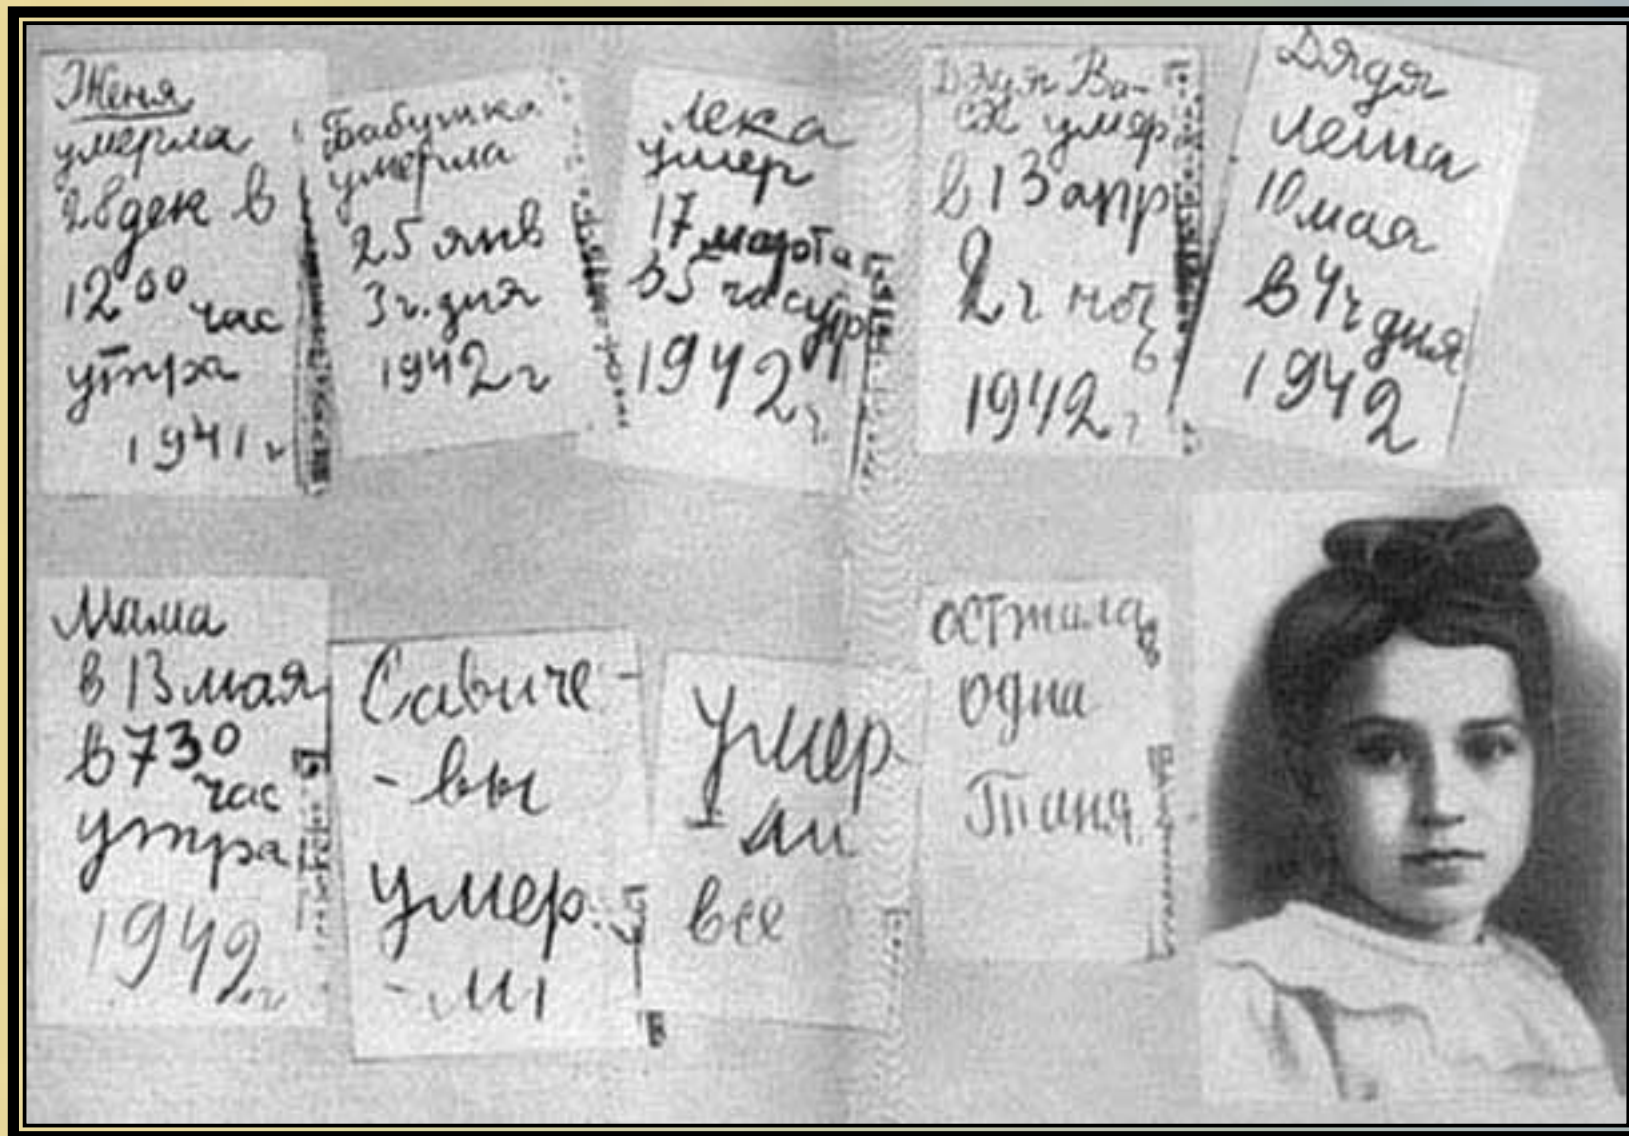 Женя
умерла
28 дек в
12 00 час
утра
1941 г
Бабушка
умерла
25 янв
3 ч. дня
1942 г
Лека
умер
17 марта
в 5 час утр
1942 г.
Дядя Ва-
ся умер
в 13 апр
2 ч ноч
1942 г
Дядя
Леша
10 мая
в 4 ч дня
1942
Мама
в 13 мая
в 730
час
утра
1942 г
Савиче-
-вы
умер
-ли
Умер
ли
все
осталась
одна
Таня